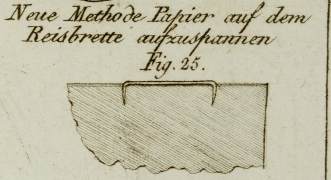 Neue Methode Papier auf dem
Reisbrette aufzuspannen
Fig. 25.